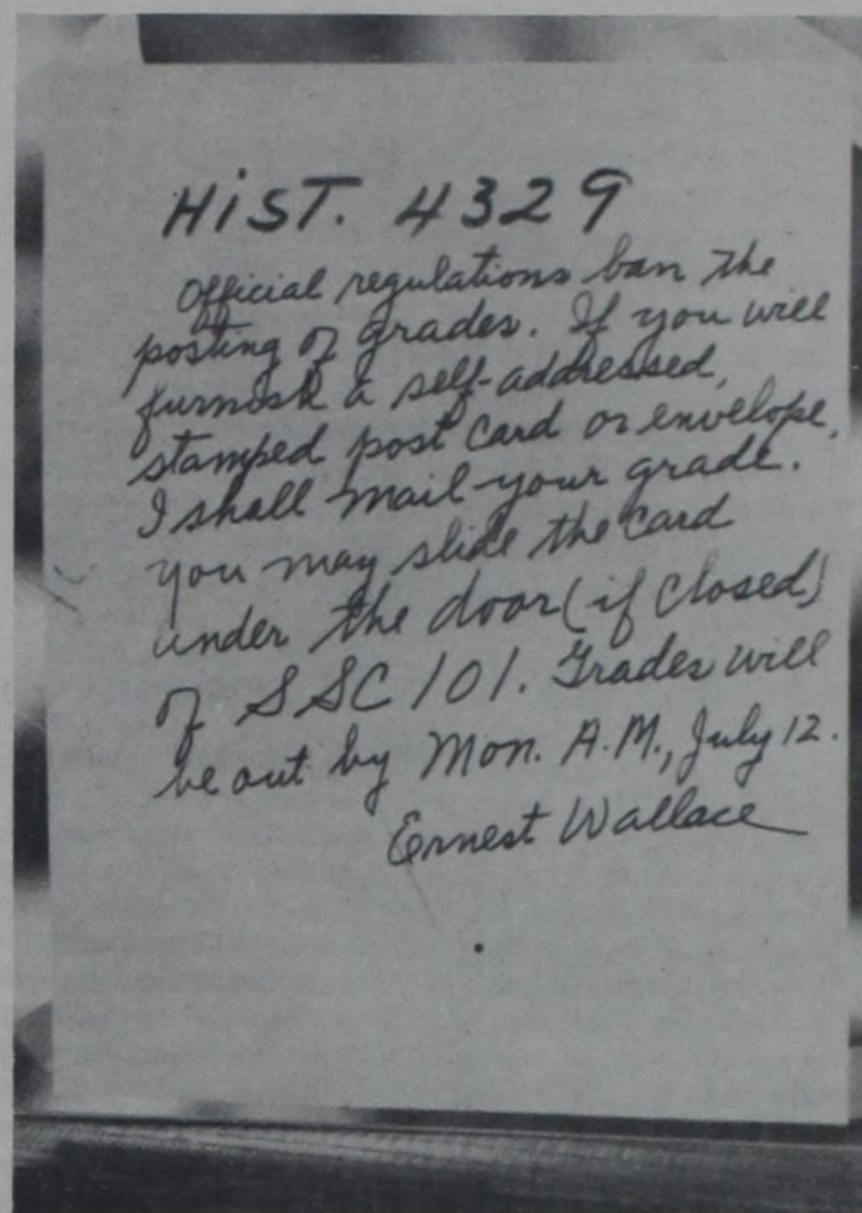 HiST. 4329
Official regulations ban the
posting of grades. If you will
furnish a self-addressed,
stamped post card or envelope,
I shall mail your grade.
You may slide the card
under the door (if closed)
of SSC 101. Grades will
be out by Mon. A.M., July 12.
Ernest Wallace